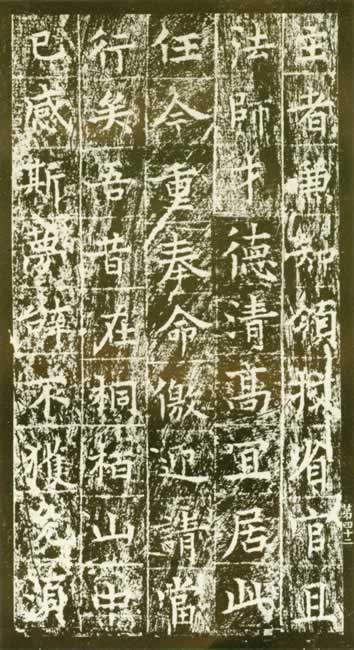 主者兼知領省官且
法師才德清高宜居此
任今重奉命徼迎請當
行矣吾昔在桐栢山中
已感斯夢辝不獲免須
第四十二